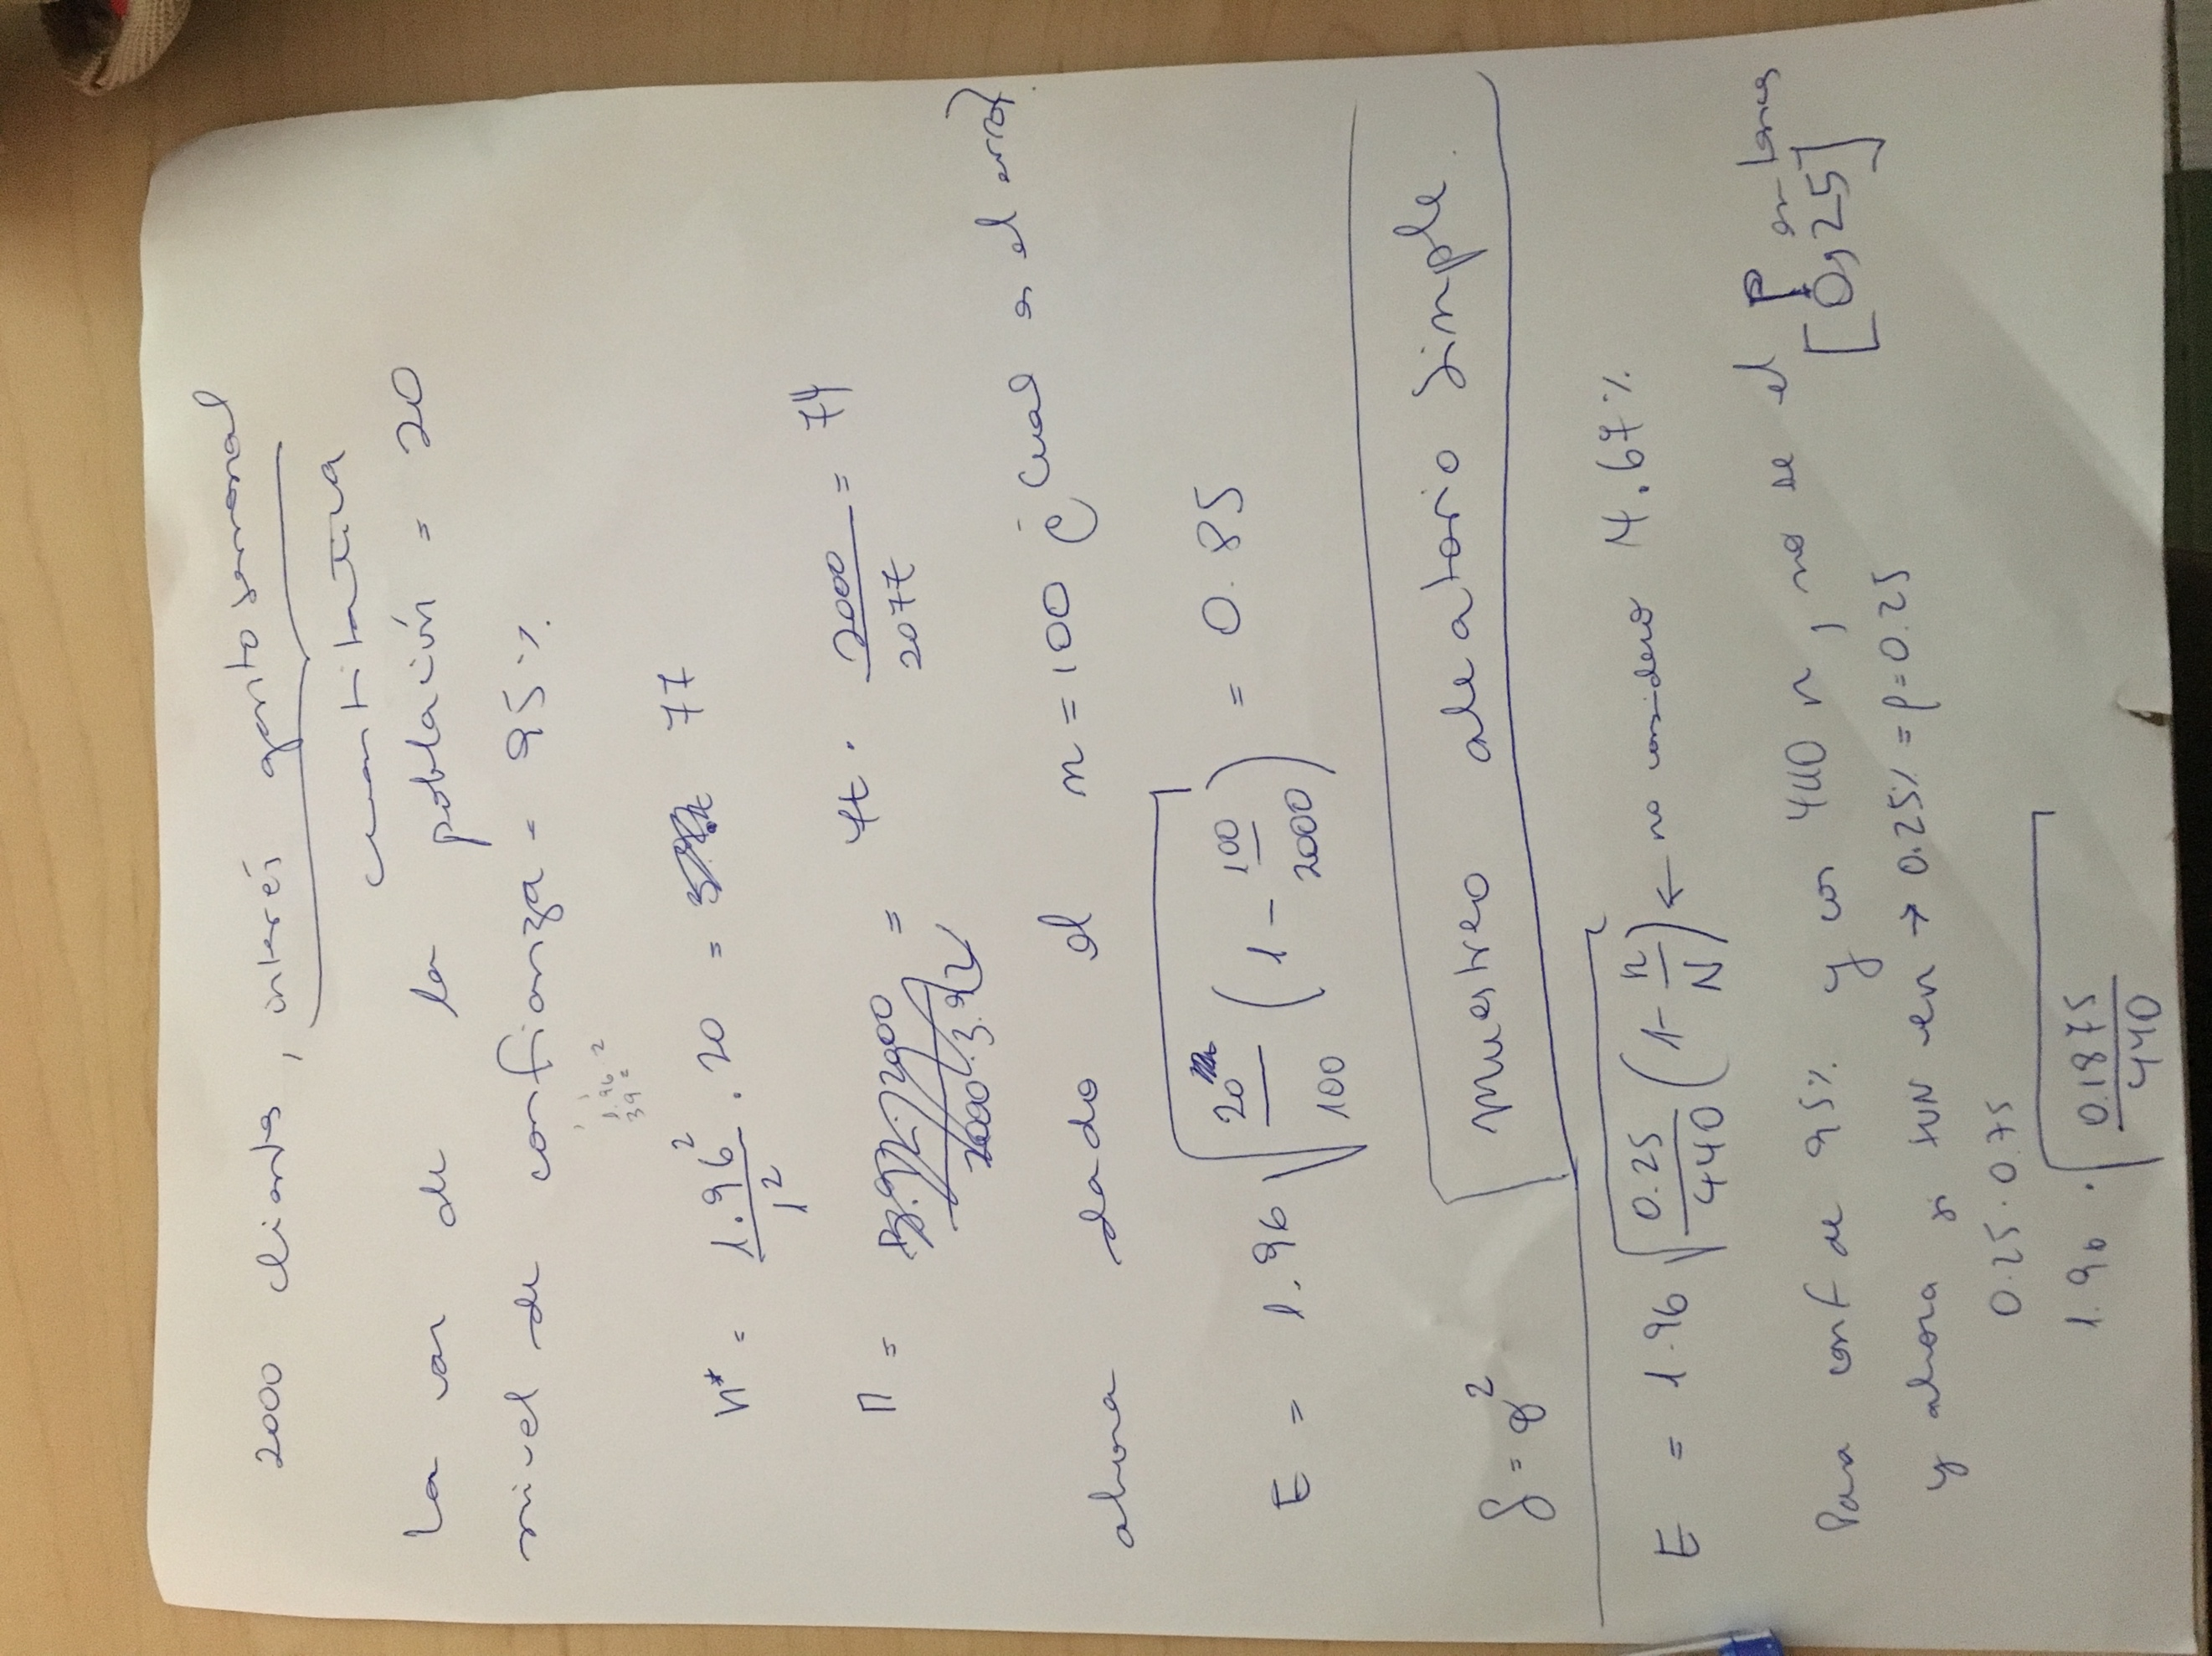 2000 clientes, interés gasto semanal
cuantitativa
La var de la población = 20
nivel de confianza = 95%.
1.96²
39=
n* = 1.96² / 1² . 20 = 77
n = 77 . 2000 / 2077 = 74
ahora dado el n = 100 ¿Cual es el error?
E = 1.96 √ 20 / 100 (1 - 100 / 2000) = 0.85
muestreo aleatorio simple.
E = 1.96 √ 0.25 / 440 (1 - n / N) ← no considero 4.67%
Para conf de 95% y con 440 n, no se el P entonces
[0,25]
y ahora si tuvieren → 0.25% = p = 0.25
0.25 . 0.75
1.96 . √ 0.1875 / 440